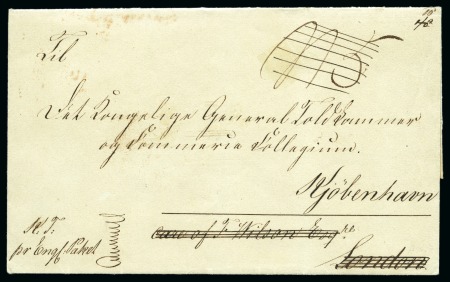 Til
Det Kongelige General Toldkammer
og Commerce Collegium.
Kjöbenhavn
care of J. Wilson Esqre
London
K. T.
pr Engl. Paket